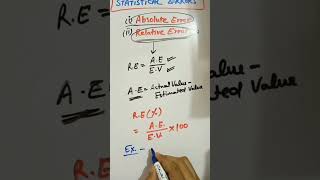 STATISTICAL ERRORS
(i) Absolute Error
(ii) Relative Error
R.E = A.E / E.V
A.E = Actual Value -
Estimated Value
R.E (%)
= A.E. / E.V × 100
Ex. -